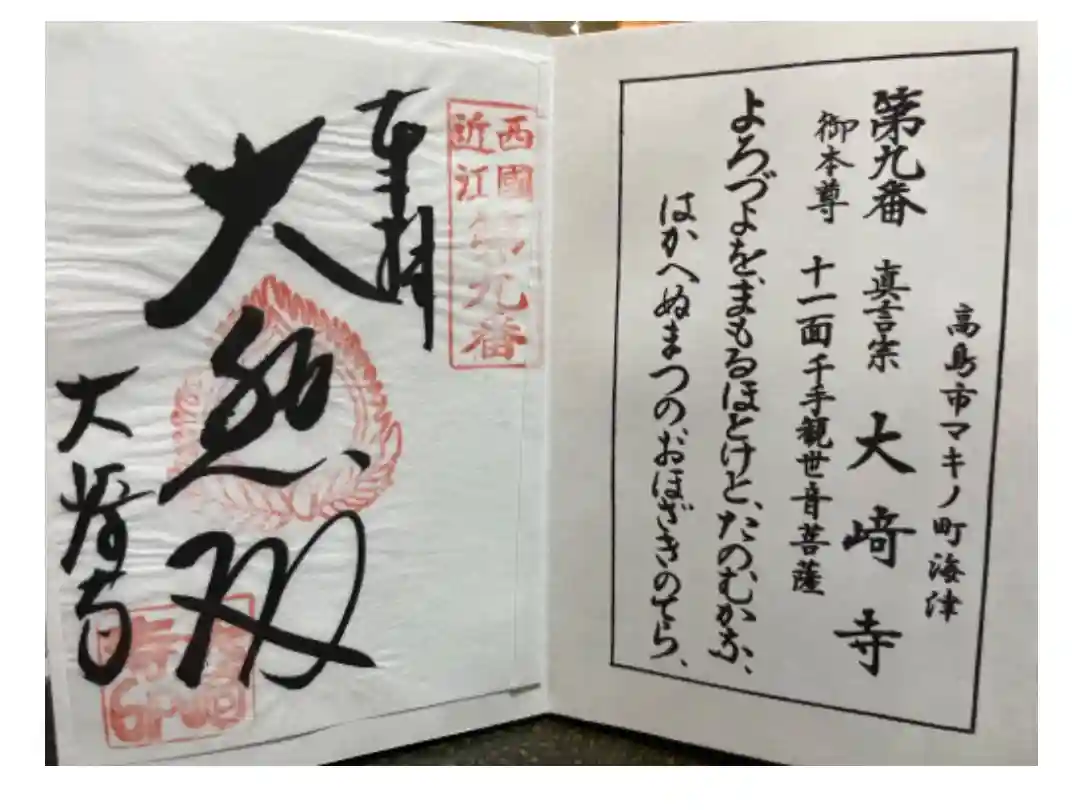 高島市マキノ町海津
第九番 真言宗 大﨑寺
御本尊 十一面千手観世音菩薩
よろづよを、まもるほとけと、たのむかな、
はかへぬまつのおほざきのてら、
西國
近江
第九番
奉拝
大悲殿
大﨑寺